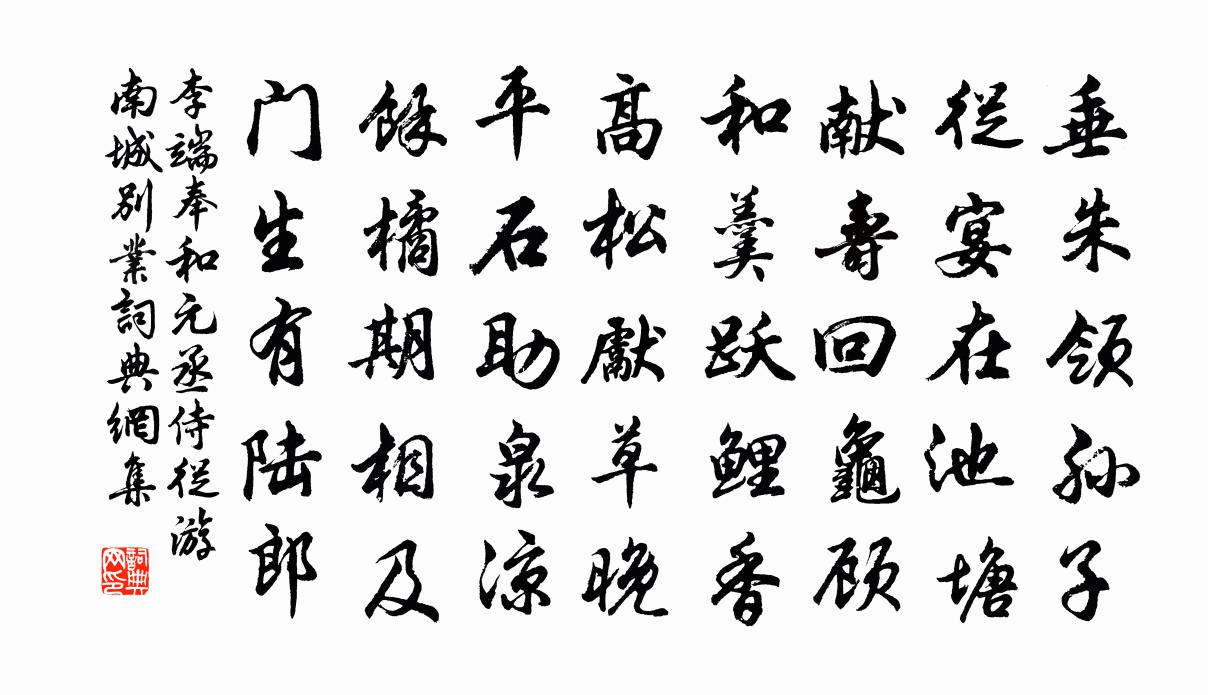 垂朱领孙子
从宴在池塘
献壽回龜顾
和羹跃鲤香
高松獻草晚
平石助泉凉
餘橘期相及
门生有陆郎
李端奉和元丞侍从游
南城别業詞典網集
詞典网印